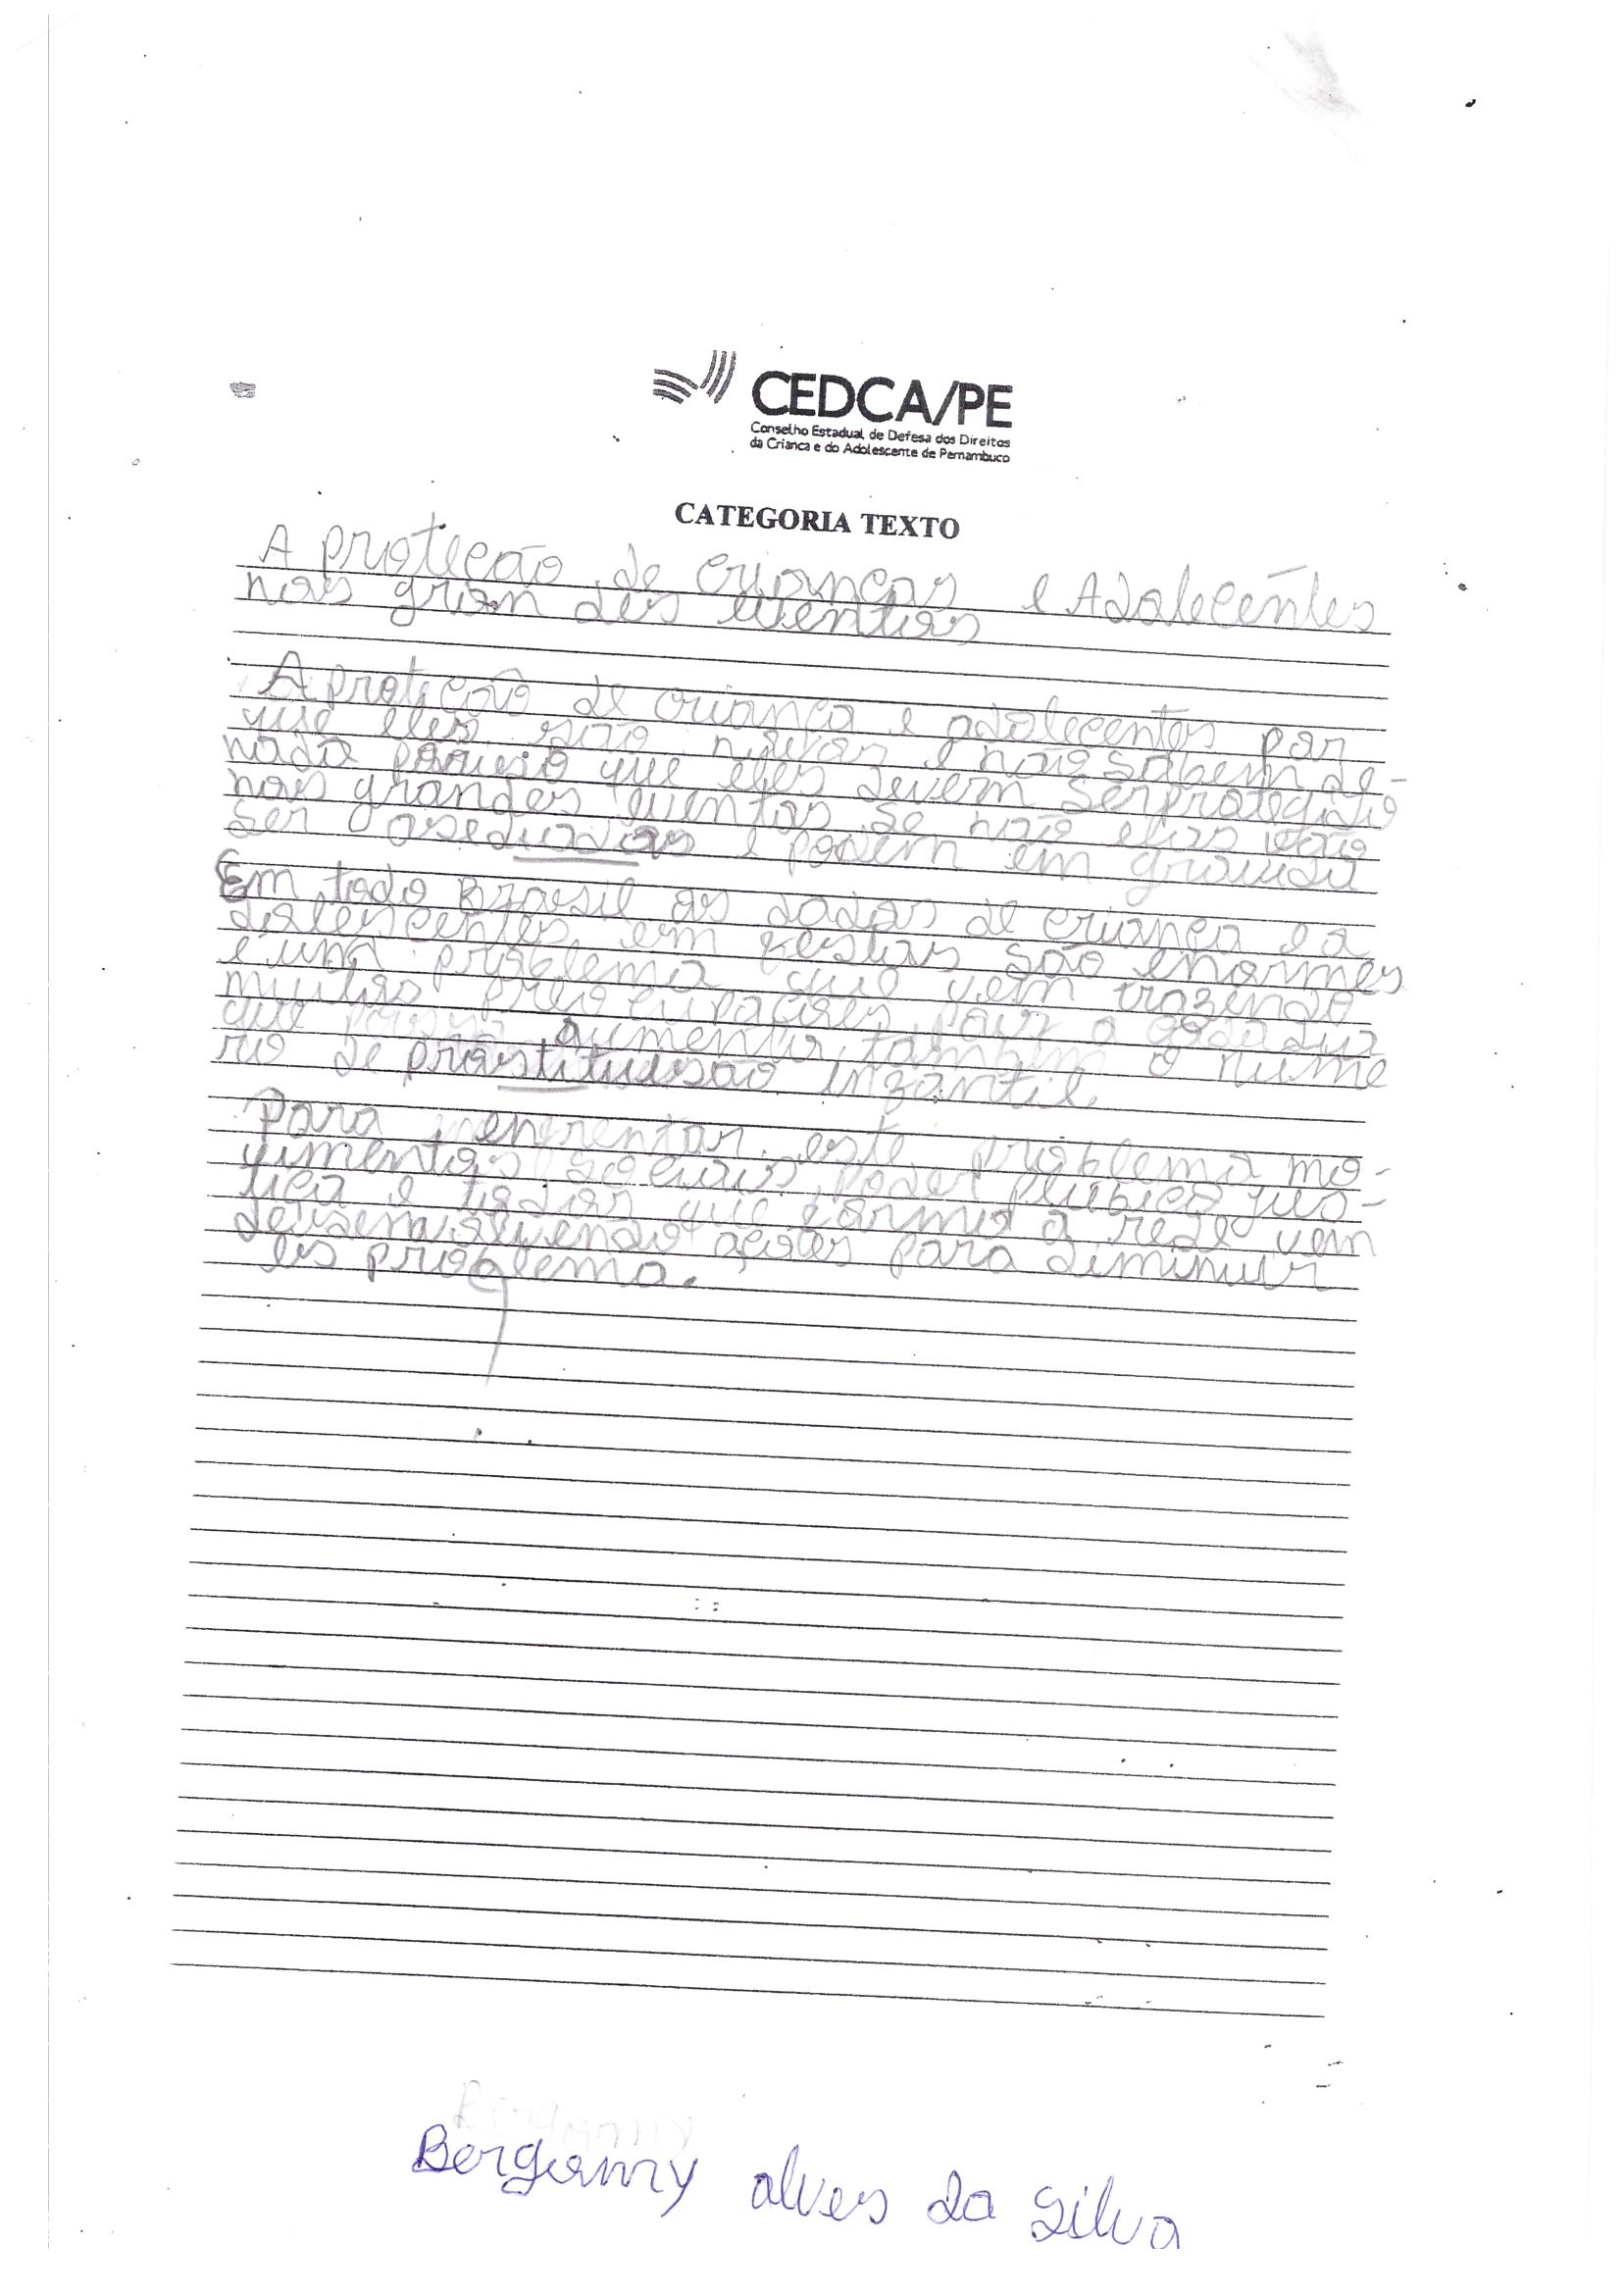 CEDCA/PE
Conselho Estadual de Defesa dos Direitos
da Criança e do Adolescente de Pernambuco
CATEGORIA TEXTO
A proteção de crianças e Adolecêntes
nos gran des eventos
A proteção de criança e adolecentes por
que eles são novos e não sabem de-
nada por iso que eles devem ser protegido
nos grandes eventos se não elas vão
ser aseduzidas e podem em gravida
Em todo Brasil os dados de criança e a
dolescentes em festas são enormes
e um problema que vem trazendo
muitas preocupações pois a
que possa aumentar também o nume
ro de prostitudusão infantil.
Para enfrentar este problema mo-
vimentos sociais, poder plubico jus-
tiça e todos que forma a rede vem
desenvolvendo ações para diminuir
es problema.
Bergamy alves da Silva